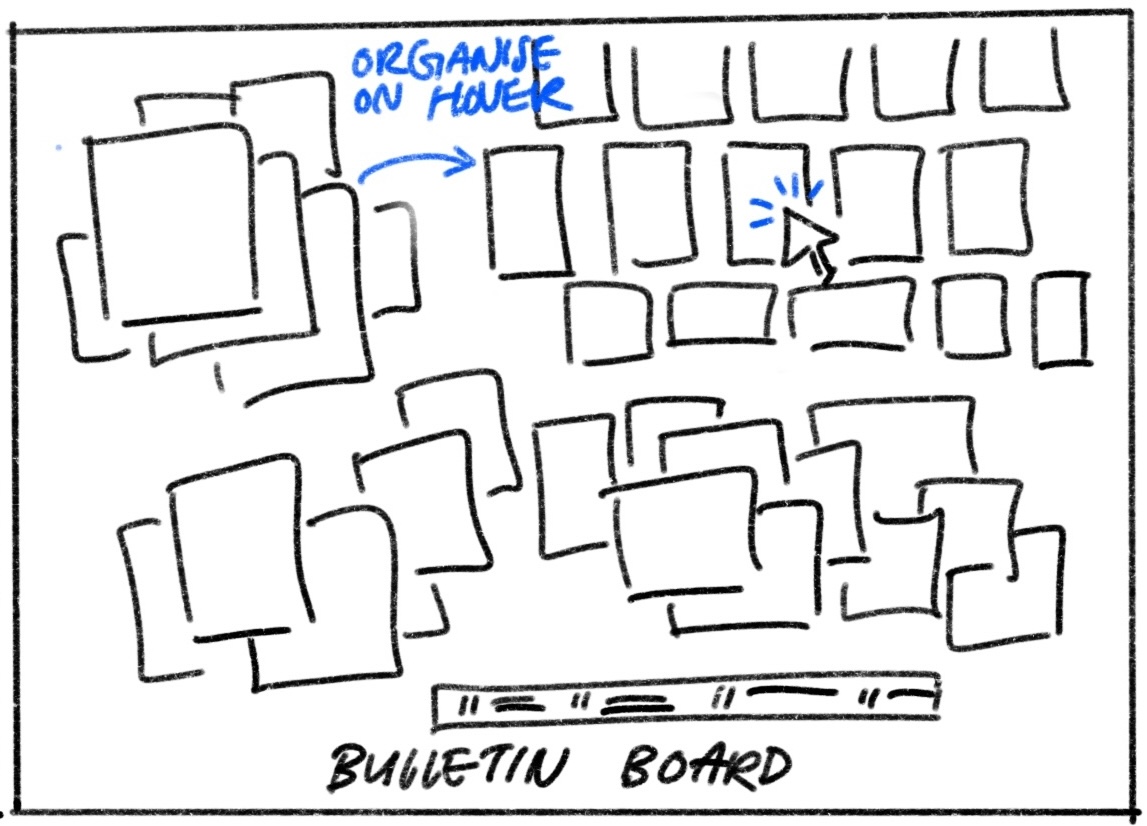 ORGANISE
ON HOVER
BULLETIN BOARD